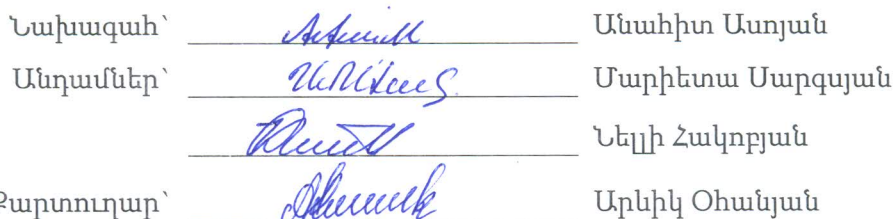 Նախագահ՝ Անահիտ Ասոյան
Անդամներ՝ Մարիետա Սարգսյան
Նելլի Հակոբյան
Քարտուղար՝ Արևիկ Օհանյան